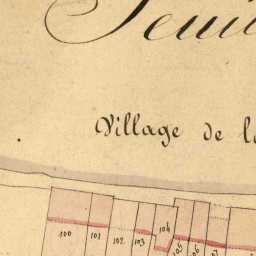 Village de
100 101 102 103 104
105 106 107